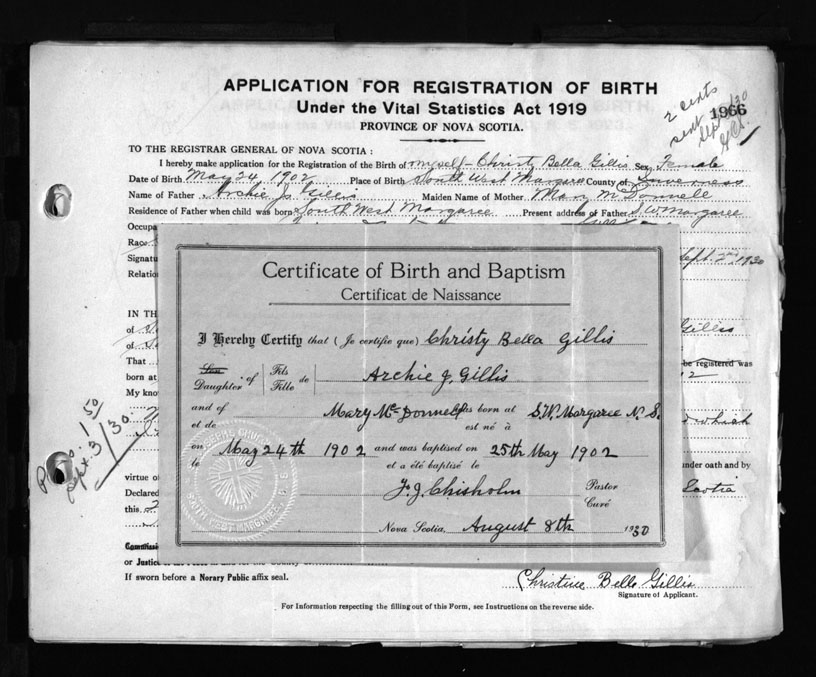 APPLICATION FOR REGISTRATION OF BIRTH
Under the Vital Statistics Act 1919
PROVINCE OF NOVA SCOTIA.
2 cents
sent
1966
TO THE REGISTRAR GENERAL OF NOVA SCOTIA :
I hereby make application for the Registration of the Birth of myself - Christy Bella Gillis Sex Female
Date of Birth May 24, 1902 Place of Birth South West Margaree County of Inverness
Name of Father Archie J. Gillis Maiden Name of Mother Mary McDonnell
Residence of Father when child was born South West Margaree Present address of Father S.W. Margaree
Occupa
Race
Signatu Sept. 2nd 1930
Relation
Certificate of Birth and Baptism
Certificat de Naissance
I Hereby Certify that (Je certifie que) Christy Bella Gillis
Son Daughter of Fils Fille de Archie J. Gillis
and of Mary McDonnell was born at S.W. Margaree N. S.
et de est né à
on May 24th 1902 and was baptised on 25th May 1902
le et a été baptisé le
J. J. Chisholm Pastor
Curé
Nova Scotia, August 8th 1930
IN TH
of Gillis
of
That be registered was
born at
My know
which
under oath and by
virtue of
Declared Scotia
this
Commissi
or Justice
If sworn before a Notary Public affix seal.
Christine Bella Gillis
Signature of Applicant.
For Information respecting the filling out of this Form, see Instructions on the reverse side.
1 50
Sept. 3/30